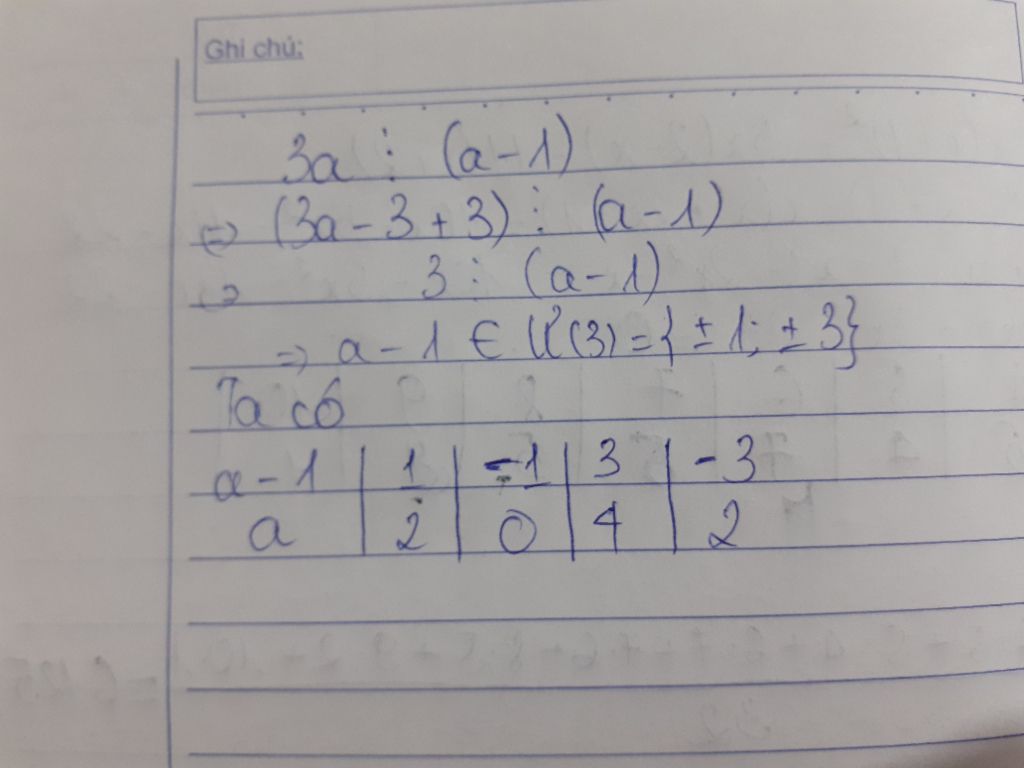 Ghi chú:
3a ⋮ (a - 1)
=> (3a - 3 + 3) ⋮ (a - 1)
=> 3 ⋮ (a - 1)
=> a - 1 ∈ Ư(3) = { ± 1; ± 3}
Ta có
a - 1 | 1 | -1 | 3 | - 3
a | 2 | 0 | 4 | 2